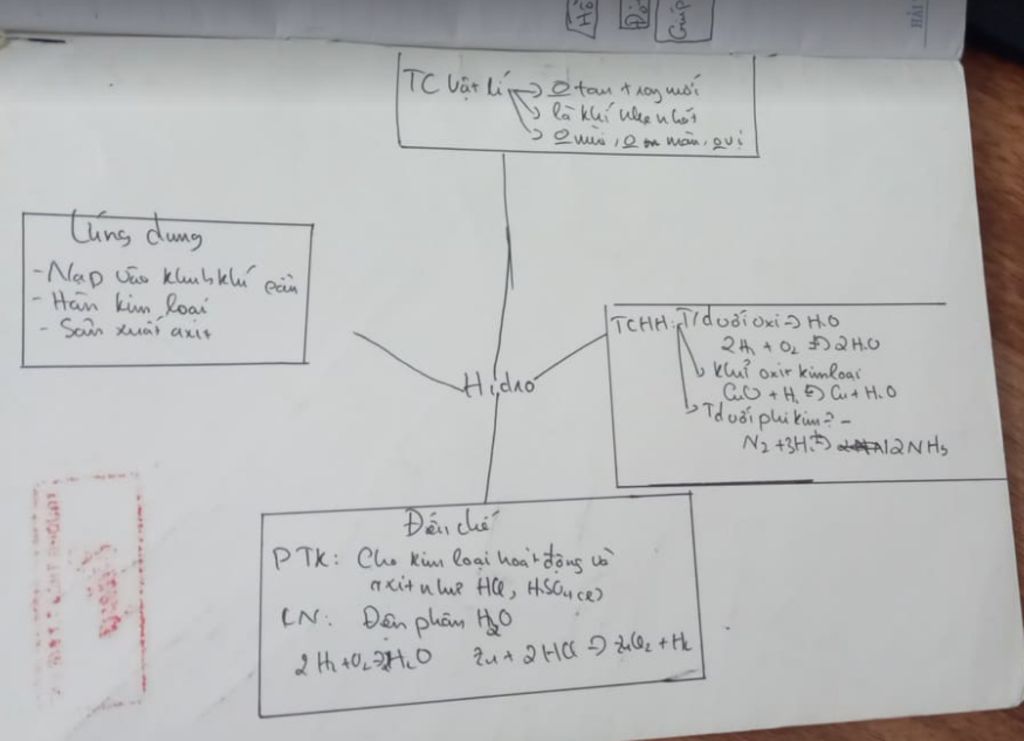 Hồ
Đó
Giúp
HẢI
TC Vật lí → O tan trong nước
→ là khí nhẹ nhất
→ O mùi, O màu, O vị
Ứng dụng
- Nạp vào khinh khí cầu
- Hàn kim loại
- Sản xuất axit
TCHH: T/d với oxi → H2O
2H2 + O2 → 2H2O
khử oxit kim loại
CuO + H2 → Cu + H2O
T/d với phi kim
N2 + 3H2 → 2NH3
Hiđro
Điều chế
PTK: Cho kim loại hoạt động và
axit như HCl, H2SO4(l)
CN: Điện phân H2O
2H2 + O2 → 2H2O Zn + 2HCl → ZnCl2 + H2